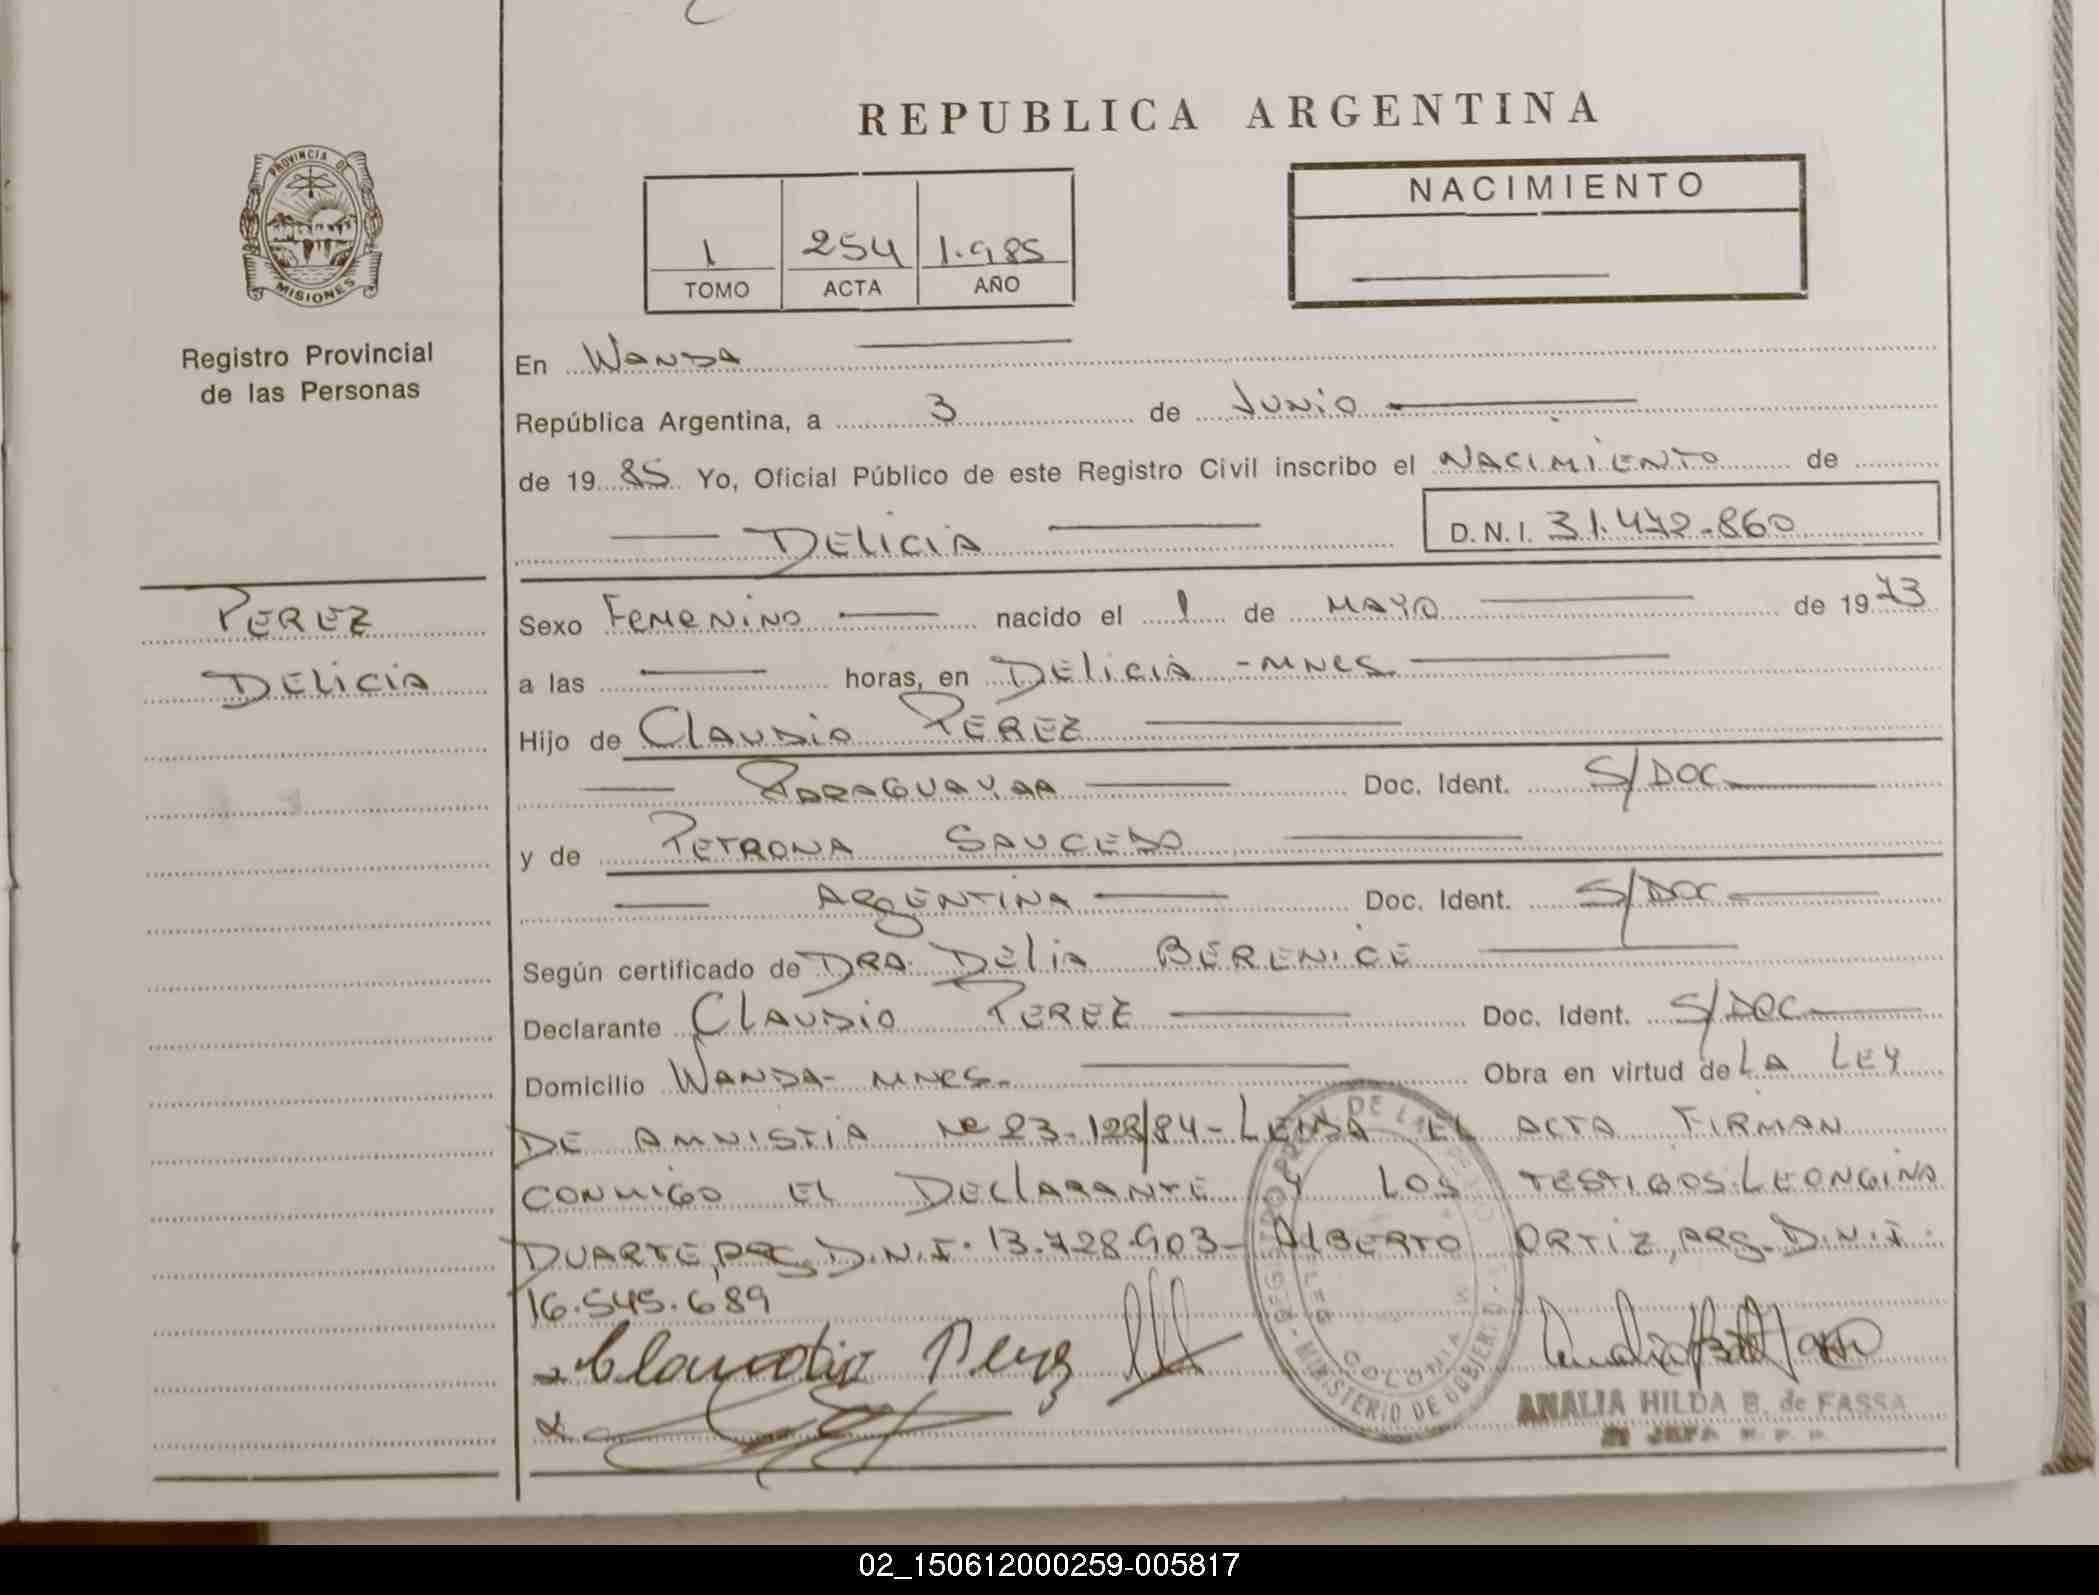 REPUBLICA ARGENTINA
PROVINCIA DE MISIONES
Registro Provincial
de las Personas
1 254 1.985
TOMO ACTA AÑO
NACIMIENTO
En Wanda
República Argentina, a 3 de Junio
de 1985 Yo, Oficial Público de este Registro Civil inscribo el NACIMIENTO de
DELICIA D.N.I. 31.472.860
PEREZ
DELICIA
Sexo Femenino nacido el 1 de MAYO de 1973
a las horas, en DELICIA - MNES.
Hijo de CLAUDIO PEREZ
PARAGUAYAA Doc. Ident. S/DOC
y de PETRONA SAUCEDO
ARGENTINA Doc. Ident. S/DOC
Según certificado de DRA. DELIA BERENICE
Declarante CLAUDIO PEREZ Doc. Ident. S/DOC
Domicilio WANDA - MNES. Obra en virtud de LA LEY
DE AMNISTIA Nº 23.122/84 - LEIDA EL ACTA FIRMAN
CONMIGO EL DECLARANTE Y LOS TESTIGOS: LEONGINA
DUARTE, ARG. D.N.I. 13.728.903 - ALBERTO ORTIZ, ARG. D.N.I.
16.545.689
Claudio Perez
MINISTERIO DE GOBIERNO
COLONIA
ANALIA HILDA B. de FASSA
JEFA R. P. P.
02_150612000259-005817